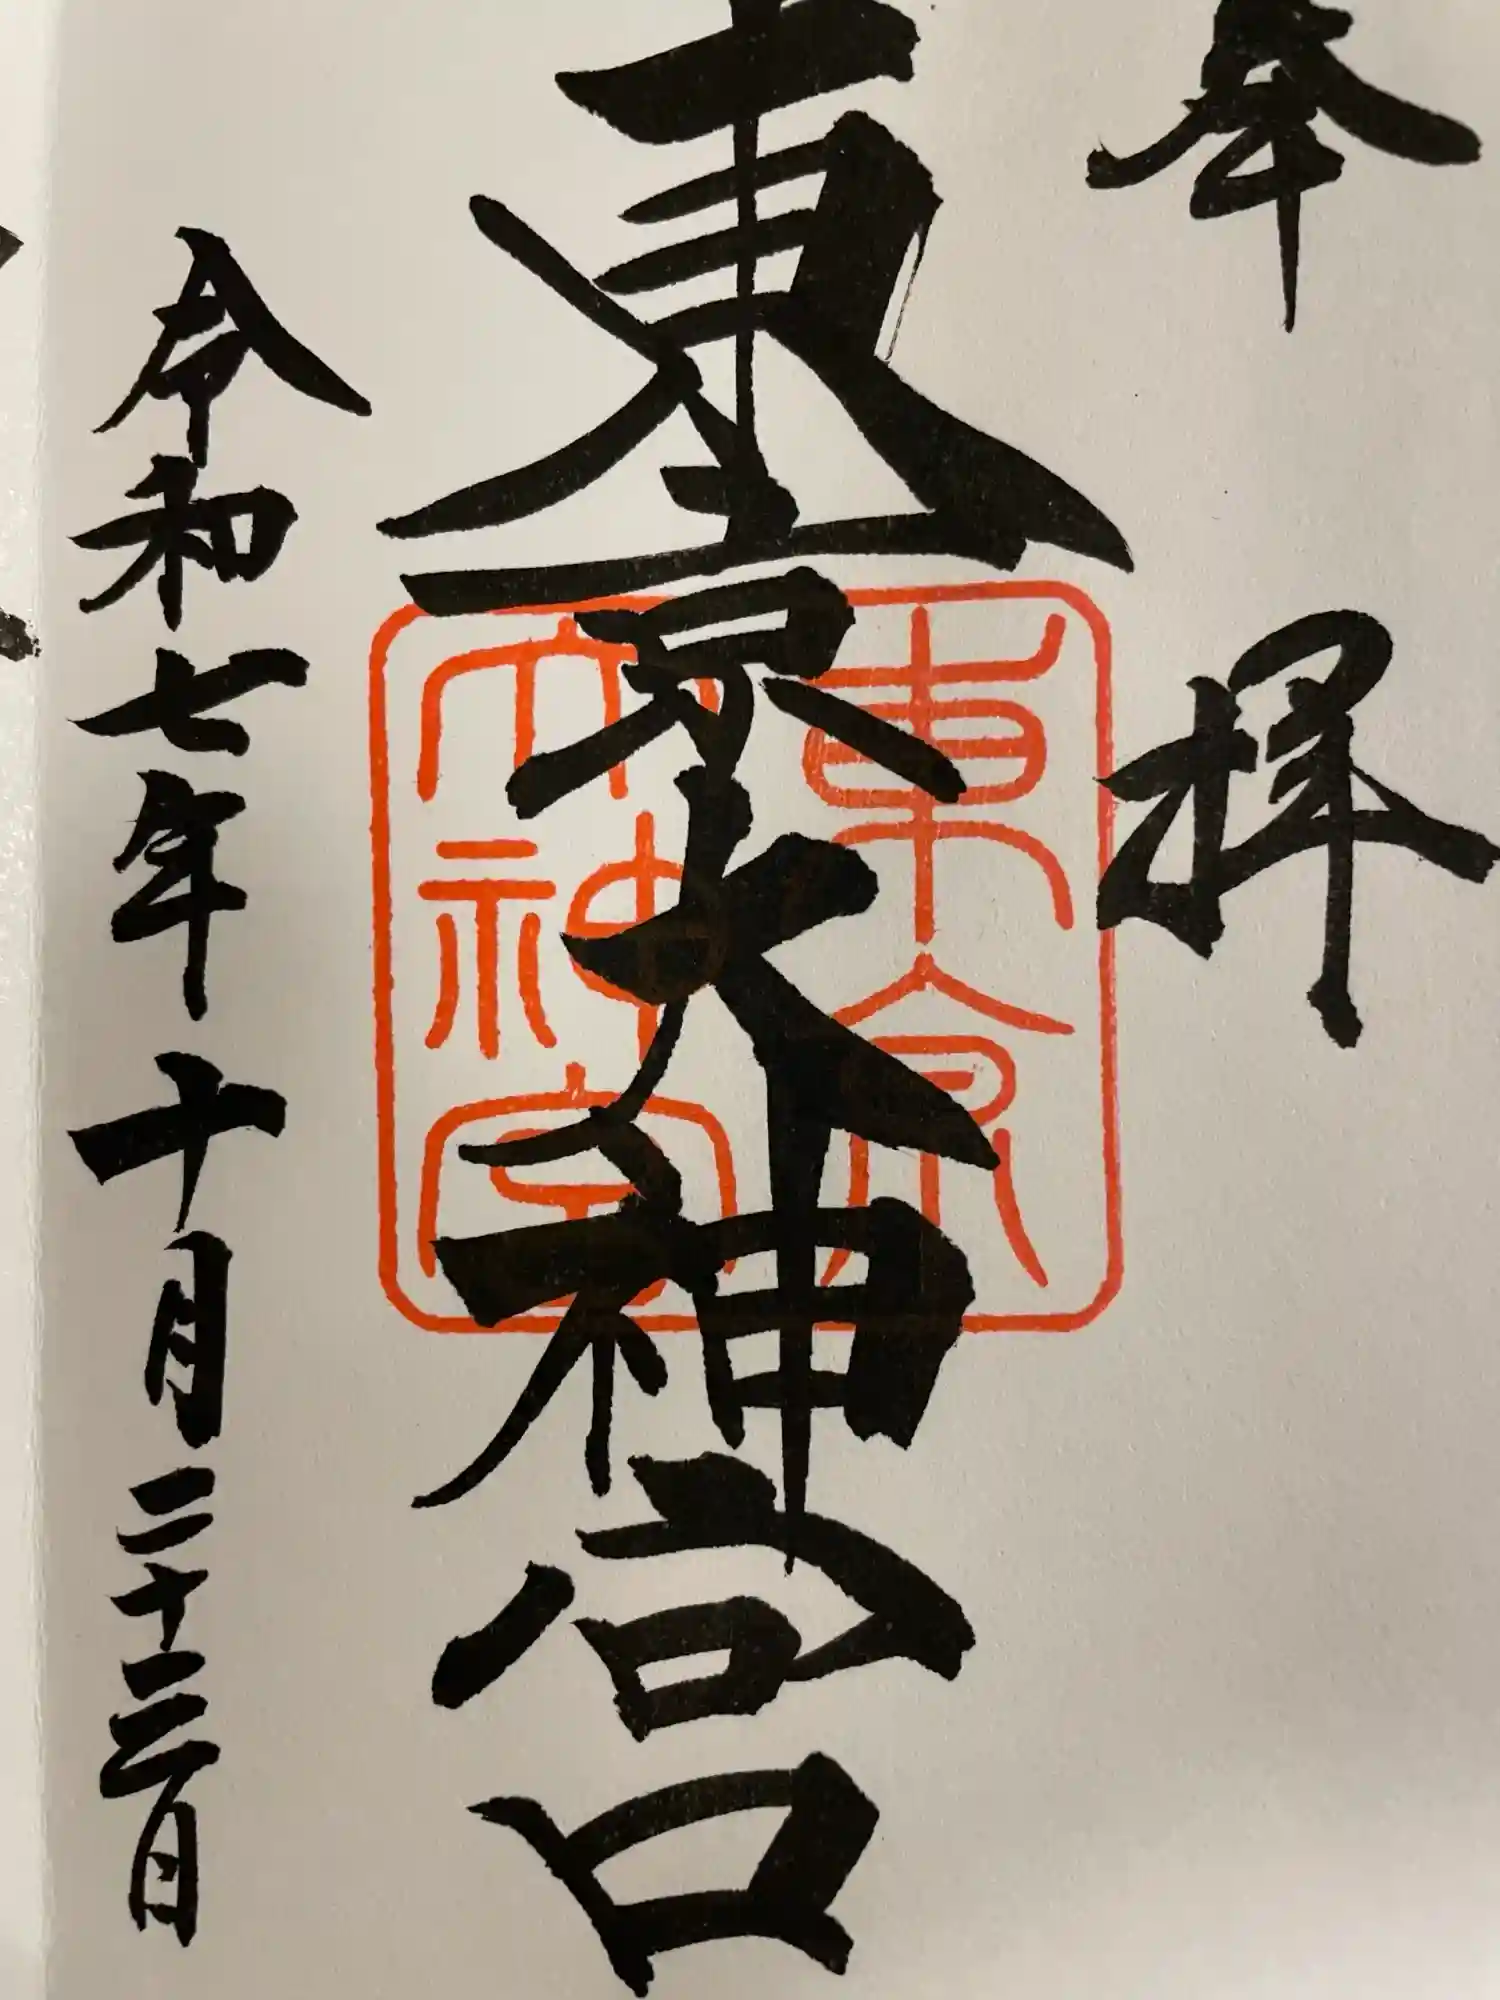 奉拝
東京大神宮
東京
大神宮
令和七年十月二十三日